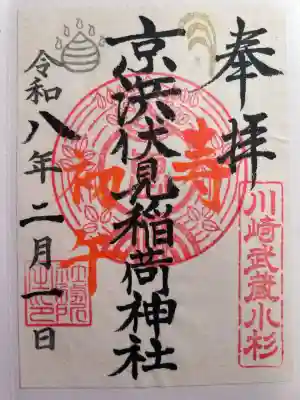 奉拝
川崎武蔵小杉
寿
京浜伏見稲荷神社
初午
令和八年二月一日